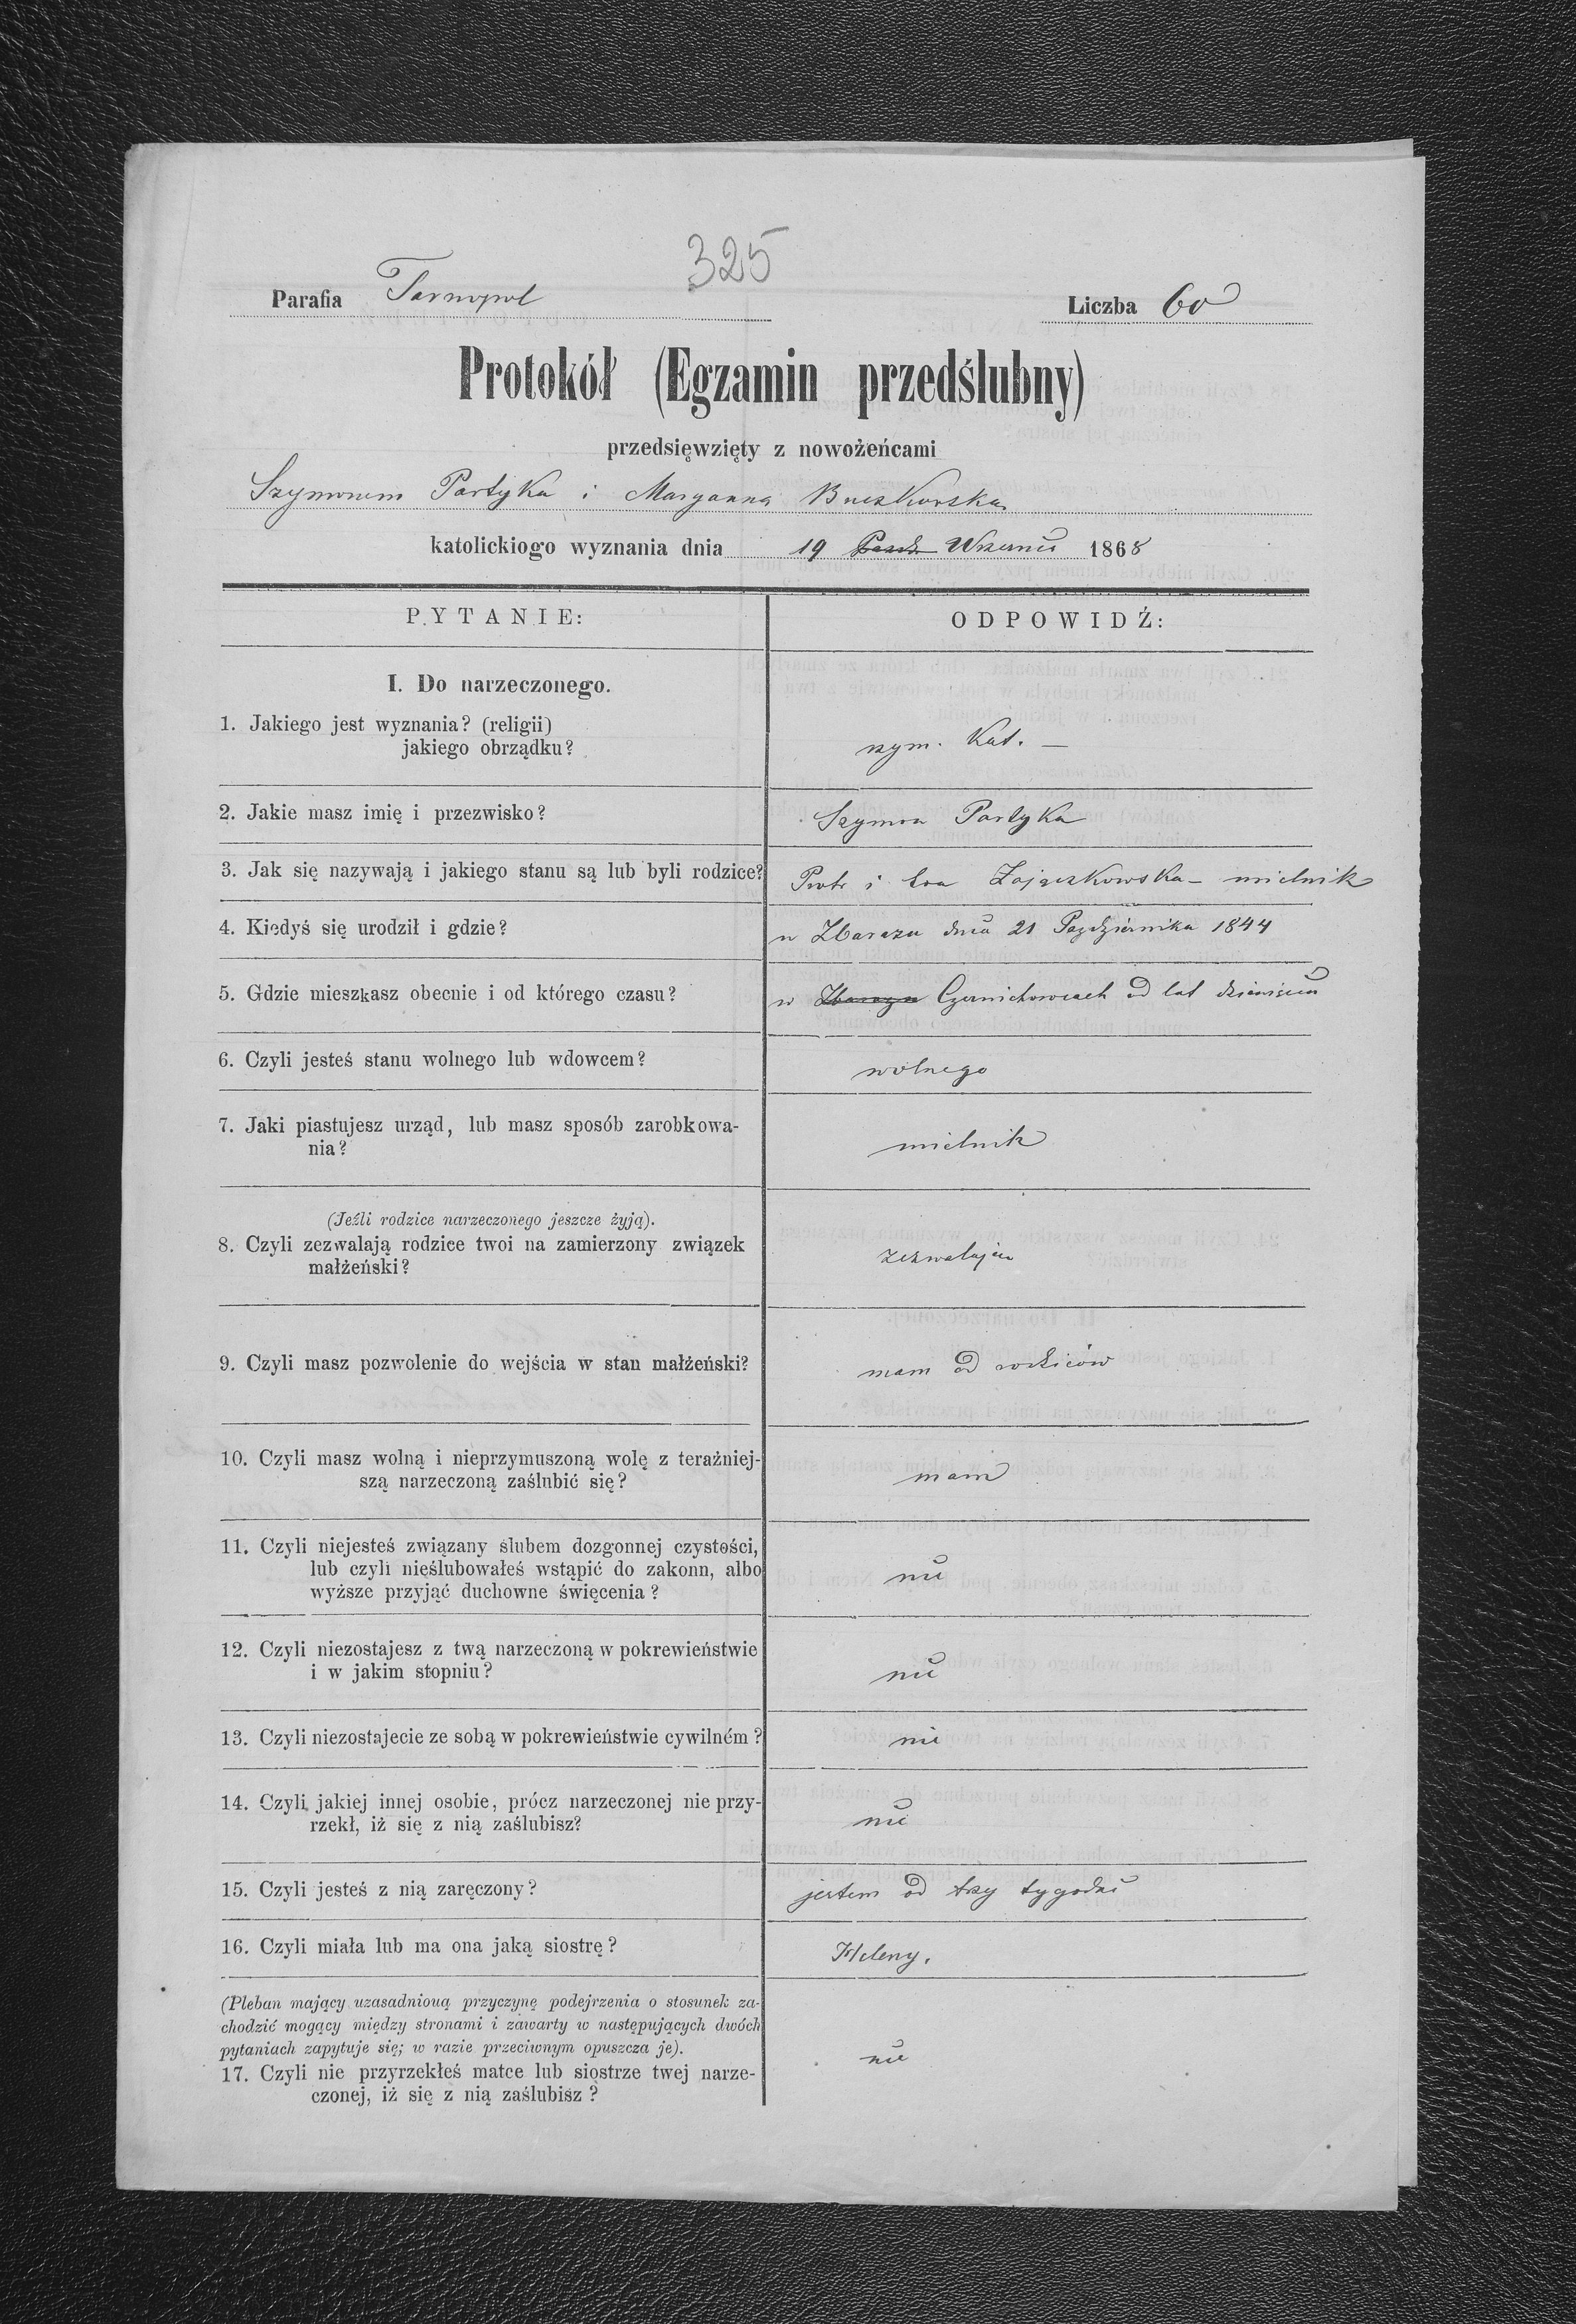 325
Parafia Tarnopol
Liczba 60
Protokół (Egzamin przedślubny)
przedsięwzięty z nowożeńcami
Szymonem Partyka i Maryanna Buczkowska
katolickiogo wyznania dnia 19 Wrzesnia 1868
PYTANIE:
ODPOWIDŹ:
I. Do narzeczonego.
1. Jakiego jest wyznania? (religii)
jakiego obrządku?
rzym. Kat. —
2. Jakie masz imię i przezwisko?
Szymon Partyka
3. Jak się nazywają i jakiego stanu są lub byli rodzice?
Piotr i Ewa Zajączkowska – mielnik
4. Kiedyś się urodził i gdzie?
w Zbarazu dnia 21 Pazdziernika 1844
5. Gdzie mieszkasz obecnie i od którego czasu?
w Zbarazu Czernichowcach od lat dziewięciu
6. Czyli jesteś stanu wolnego lub wdowcem?
wolnego
7. Jaki piastujesz urząd, lub masz sposób zarobkowa-
nia?
mielnik
(Jeźli rodzice narzeczonego jeszcze żyją).
8. Czyli zezwalają rodzice twoi na zamierzony związek
małżeński?
zezwalają
9. Czyli masz pozwolenie do wejścia w stan małżeński?
mam od rodziców
10. Czyli masz wolną i nieprzymuszoną wolę z teraźniej-
szą narzeczoną zaślubić się?
mam
11. Czyli niejesteś związany ślubem dozgonnej czystości,
lub czyli nieślubowałeś wstąpić do zakonn, albo
wyższe przyjąć duchowne święcenia?
nie
12. Czyli niezostajesz z twą narzeczoną w pokrewieństwie
i w jakim stopniu?
nie
13. Czyli niezostajecie ze sobą w pokrewieństwie cywilném?
nie
14. Czyli jakiej innej osobie, prócz narzeczonej nie przy-
rzekł, iż się z nią zaślubisz?
nie
15. Czyli jesteś z nią zaręczony?
jestem od trzy tygodni
16. Czyli miała lub ma ona jaką siostrę?
Heleny.
(Pleban mający uzasadnioną przyczynę podejrzenia o stosunek za-
chodzić mogący między stronami i zawarty w następujących dwóch
pytaniach zapytuje się; w razie przeciwnym opuszcza je).
17. Czyli nie przyrzekłeś matce lub siostrze twej narze-
czonej, iż się z nią zaślubisz?
nie